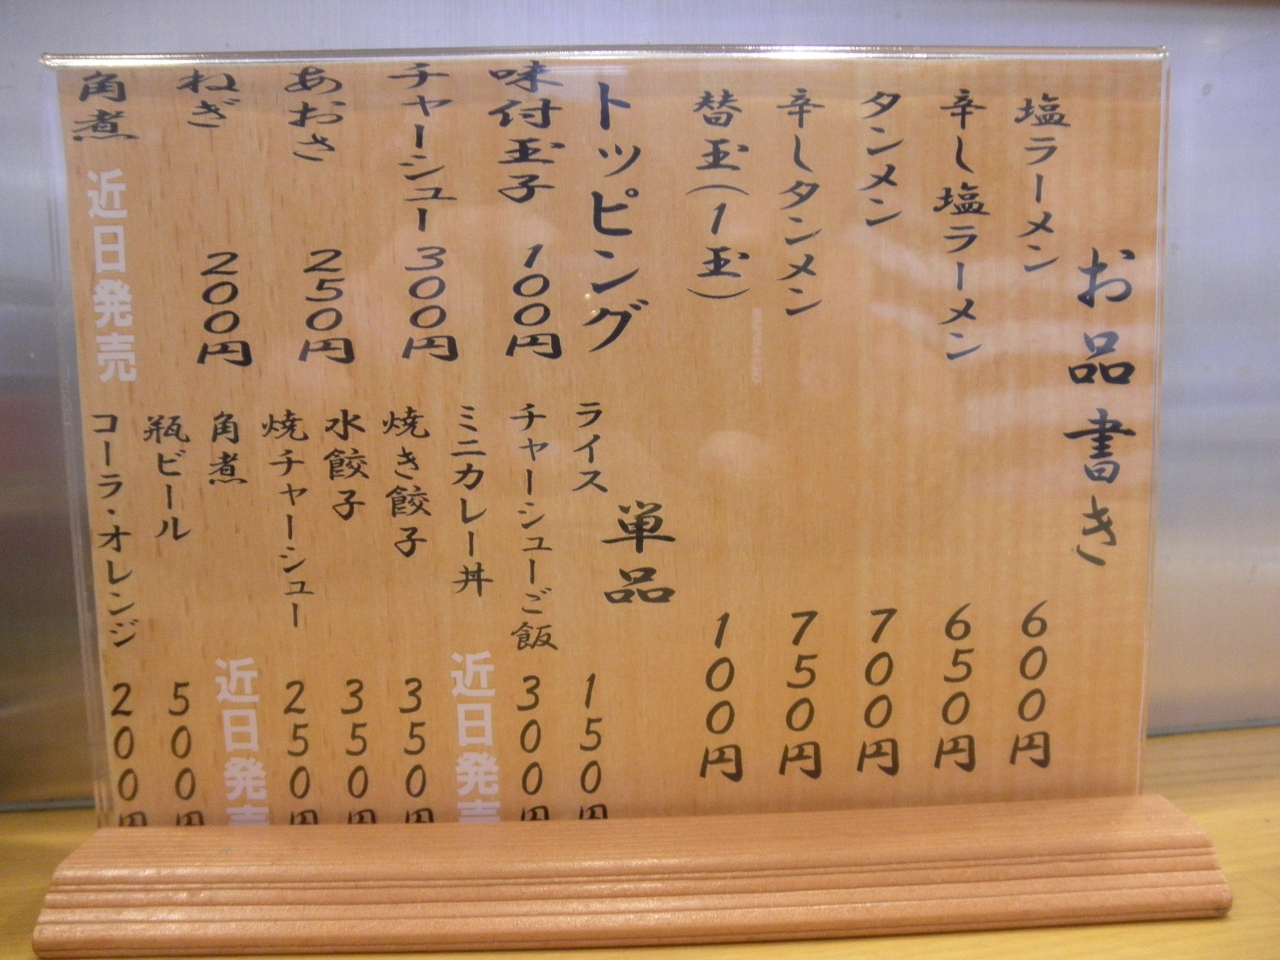 お品書き
塩ラーメン 600円
辛し塩ラーメン 650円
タンメン 700円
辛しタンメン 750円
替玉(1玉) 100円
トッピング
味付玉子 100円
チャーシュー 300円
あおさ 250円
ねぎ 200円
角煮 近日発売
単品
ライス 150円
チャーシューご飯 300円
ミニカレー丼 近日発売
焼き餃子 350円
水餃子 350円
焼チャーシュー 250円
角煮 近日発売
瓶ビール 500円
コーラ・オレンジ 200円